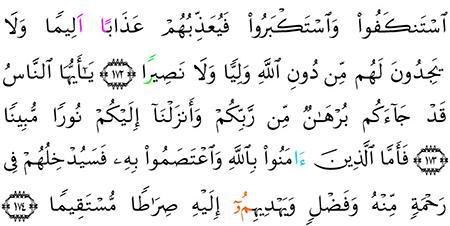 اَسْتَنكَفُواْ وَاسْتَكْبَرُواْ فَيُعَذِّبُهُمْ عَذَابًا اَلِيمًا وَلَا
يَجِدُونَ لَهُم مِّن دُونِ اللَّهِ وَلِيًّا وَلَا نَصِيرًا ﴿١٧٢﴾ يَٰٓأَيُّهَا النَّاسُ
قَدْ جَآءَكُم بُرْهَٰنٌ مِّن رَّبِّكُمْ وَأَنزَلْنَآ إِلَيْكُمْ نُورًا مُّبِينًا
﴿١٧٣﴾ فَأَمَّا الَّذِينَ ءَامَنُواْ بِاللَّهِ وَاعْتَصَمُواْ بِهِۦ فَسَيُدْخِلُهُمْ فِى
رَحْمَةٍ مِّنْهُ وَفَضْلٍ وَيَهْدِيهِمُۥٓ إِلَيْهِ صِرَٰطًا مُّسْتَقِيمًا ﴿١٧٤﴾